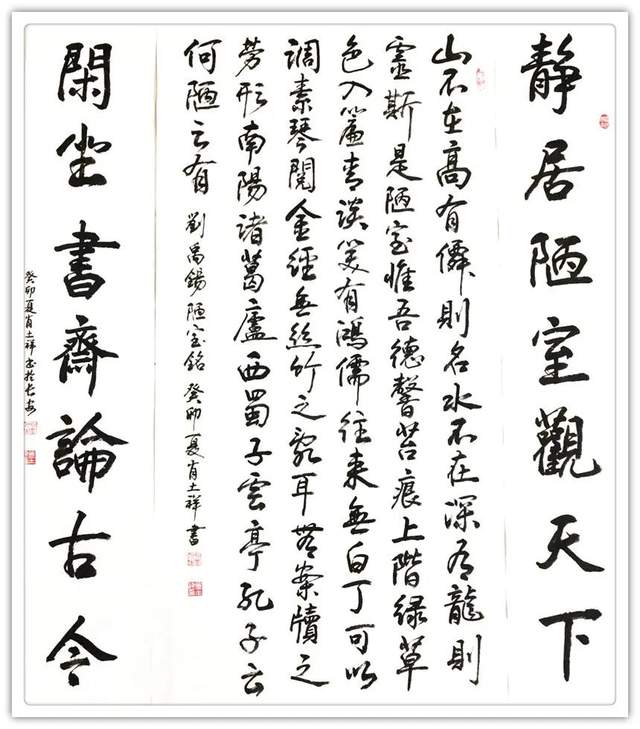 静居陋室觀天下
山不在高有僊則名水不在深有龍則
靈斯是陋室惟吾德馨苔痕上階緑草
色入簾青談笑有鴻儒往来無白丁可以
調素琴閱金經無絲竹之亂耳無案牘之
勞形南陽諸葛廬西蜀子雲亭孔子云
何陋之有 劉禹錫陋室銘 癸卯夏肖土祥書
閑坐書齋論古今
癸卯夏肖土祥書於长安